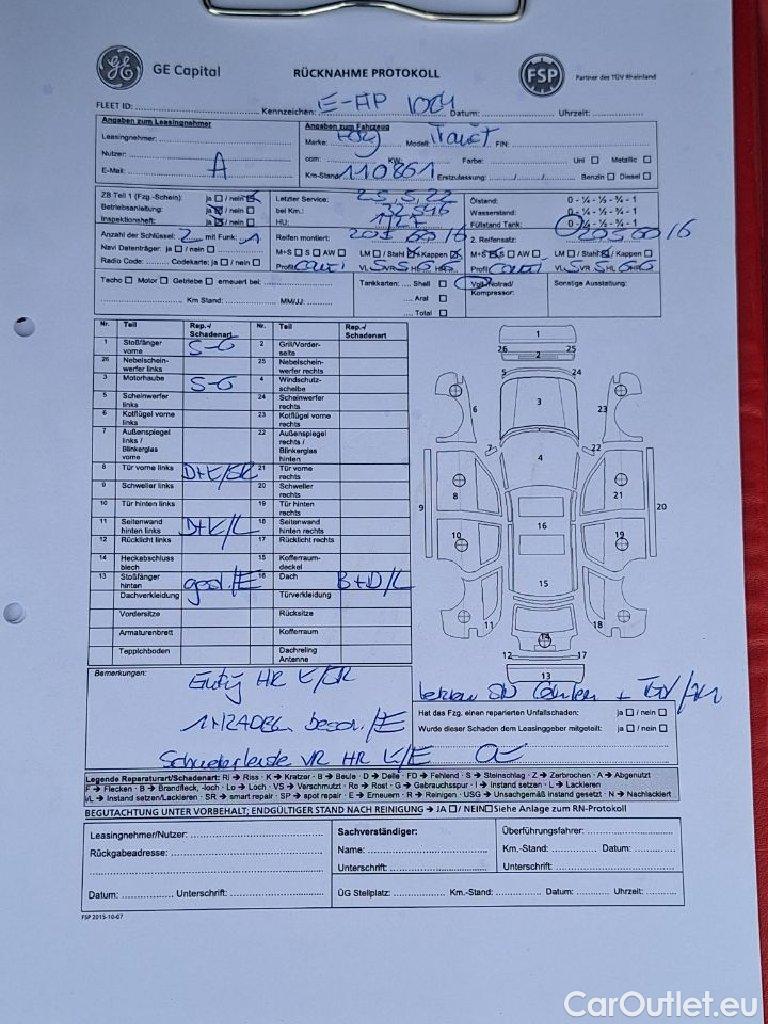 GE Capital RÜCKNAHME PROTOKOLL FSP Partner des TÜV Rheinland
FLEET ID: Kennzeichen: E-AP 1004 Datum: Uhrzeit:
Angaben zum Leasingnehmer Angaben zum Fahrzeug
Leasingnehmer: Marke: Ford Modell: Transit FIN:
Nutzer: ccm: KW: Farbe: Uni ☐ Metallic ☐
E-Mail: A Km-Stand: 110861 Erstzulassung: Benzin ☐ Diesel ☐
ZB Teil 1 (Fzg.-Schein): ja ☐ / nein ☒ Letzter Service: 25.5.22 Ölstand: 0 - ¼ - ½ - ¾ - 1
Betriebsanleitung: ja ☒ / nein ☐ bei Km.: Wasserstand: 0 - ¼ - ½ - ¾ - 1
Inspektionsheft: ja ☒ / nein ☐ HU: Füllstand Tank: 0 - ¼ - ½ - ¾ - 1
Anzahl der Schlüssel: 2 mit Funk: 1 Reifen montiert: 205 60 16 2. Reifensatz: 205 60 16
Navi Datenträger: ja ☐ / nein ☐ M+S ☐ S ☐ AW ☐ LM ☐ / Stahl ☒ Kappen ☒ M+S ☒ S ☐ AW ☐ LM ☐ / Stahl ☒ / Kappen ☐
Radio Code: Codekarte: ja ☐ / nein ☐ Profil Conti VL 5 VR 5 HL 6 HR 6 Profil Conti VL 5 VR 5 HL 6 HR 6
Tacho ☐ Motor ☐ Getriebe ☐ erneuert bei: Tankkarten: Shell ☐ Voll-/Notrad/ Sonstige Ausstattung:
Kompressor:
Km Stand: MM/JJ: Aral ☐
Total ☐
Nr. Teil Rep.-/ Schadenart Nr. Teil Rep.-/ Schadenart
1 Stoßfänger vorne S-G 2 Grill/Vorderseite
26 Nebelscheinwerfer links 25 Nebelscheinwerfer rechts
3 Motorhaube S-G 4 Windschutzscheibe
5 Scheinwerfer links 24 Scheinwerfer rechts
6 Kotflügel vorne links 23 Kotflügel vorne rechts
7 Außenspiegel links / Blinkerglas vorne 22 Außenspiegel rechts / Blinkerglas hinten
8 Tür vorne links D+K/SR 21 Tür vorne rechts
9 Schweller links 20 Schweller rechts
10 Tür hinten links 19 Tür hinten rechts
11 Seitenwand hinten links D+K/L 18 Seitenwand hinten rechts
12 Rücklicht links 17 Rücklicht rechts
14 Heckabschlussblech 15 Kofferraumdeckel
13 Stoßfänger hinten gesch./E 16 Dach B+D/L
Dachverkleidung Türverkleidung
Vordersitze Rücksitze
Armaturenbrett Kofferraum
Teppichboden Dachreling Antenne
1
26 25
2
5 24
3
6 23
7 22
4
8 21
9 20
16
10 19
15
11 18
14
12 17
13
Bemerkungen:
HR K/SR
besch./E
VR HR K/E
Hat das Fzg. einen reparierten Unfallschaden: ja ☐ / nein ☐
Wurde dieser Schaden dem Leasinggeber mitgeteilt: ja ☐ / nein ☐
Legende Reparaturart/Schadenart: Ri → Riss · K → Kratzer · B → Beule · D → Delle · FD → Fehlend · S → Steinschlag · Z → Zerbrochen · A → Abgenutzt
F → Flecken · B → Brandfleck, -loch · Lo → Loch · VS → Verschmutzt · Ro → Rost · G → Gebrauchsspur · I → Instand setzen · L → Lackieren
I/L → Instand setzen/Lackieren · SR → smart repair · SP → spot repair · E → Erneuern · R → Reinigen · USG → Unsachgemäß instand gesetzt · N → Nachlackiert
BEGUTACHTUNG UNTER VORBEHALT; ENDGÜLTIGER STAND NACH REINIGUNG → JA ☐ / NEIN ☐ Siehe Anlage zum RN-Protokoll
Leasingnehmer/Nutzer: Sachverständiger: Überführungsfahrer:
Rückgabeadresse: Name: Km.-Stand: Datum:
Unterschrift: Unterschrift:
Datum: Unterschrift: ÜG Stellplatz: Km.-Stand: Datum: Uhrzeit:
FSP 2015-10-07
CarOutlet.eu